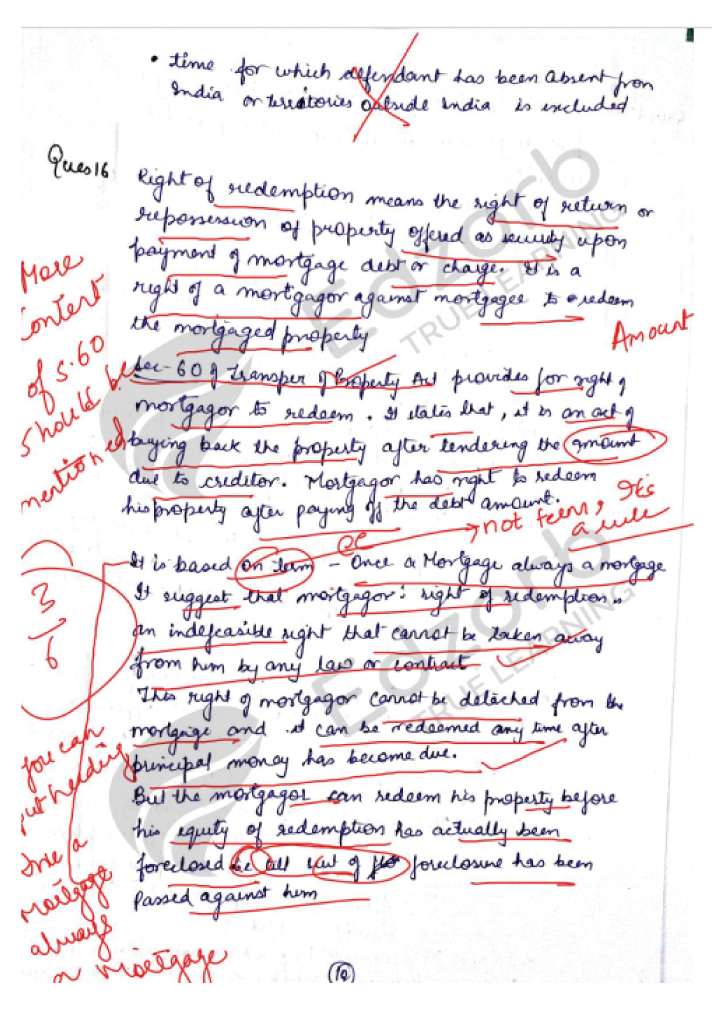 • time for which defendant has been absent from
India or territories outside India is excluded.
Ques 16
Right of redemption means the right of return or
repossession of property offered as security upon
payment of mortgage debt or charge. It is a
right of a mortgagor against mortgagee to redeem
the mortgaged property
More
content
of S.60
should be
mentioned
Amount
Sec-60 of Transfer of Property Act provides for right of
mortgagor to redeem. It states that, it is an act of
buying back the property after tendering the amount
due to creditor. Mortgagor has right to redeem
his property after paying off the debt amount.
not term, It's
a rule
3/6
It is based on term - Once a Mortgage always a mortgage
It suggest that mortgagor's right of redemption is
an indefeasible right that cannot be taken away
from him by any law or contract
This right of mortgagor cannot be detached from the
mortgage and it can be redeemed any time after
principal money has become due.
But the mortgagor can redeem his property before
his equity of redemption has actually been
foreclosed i.e till of foreclosure has been
Passed against him
you can
put heading
a
mortgage
always
a mortgage
10
Edzorb
TRUE LEARNING
Edzorb
TRUE LEARNING